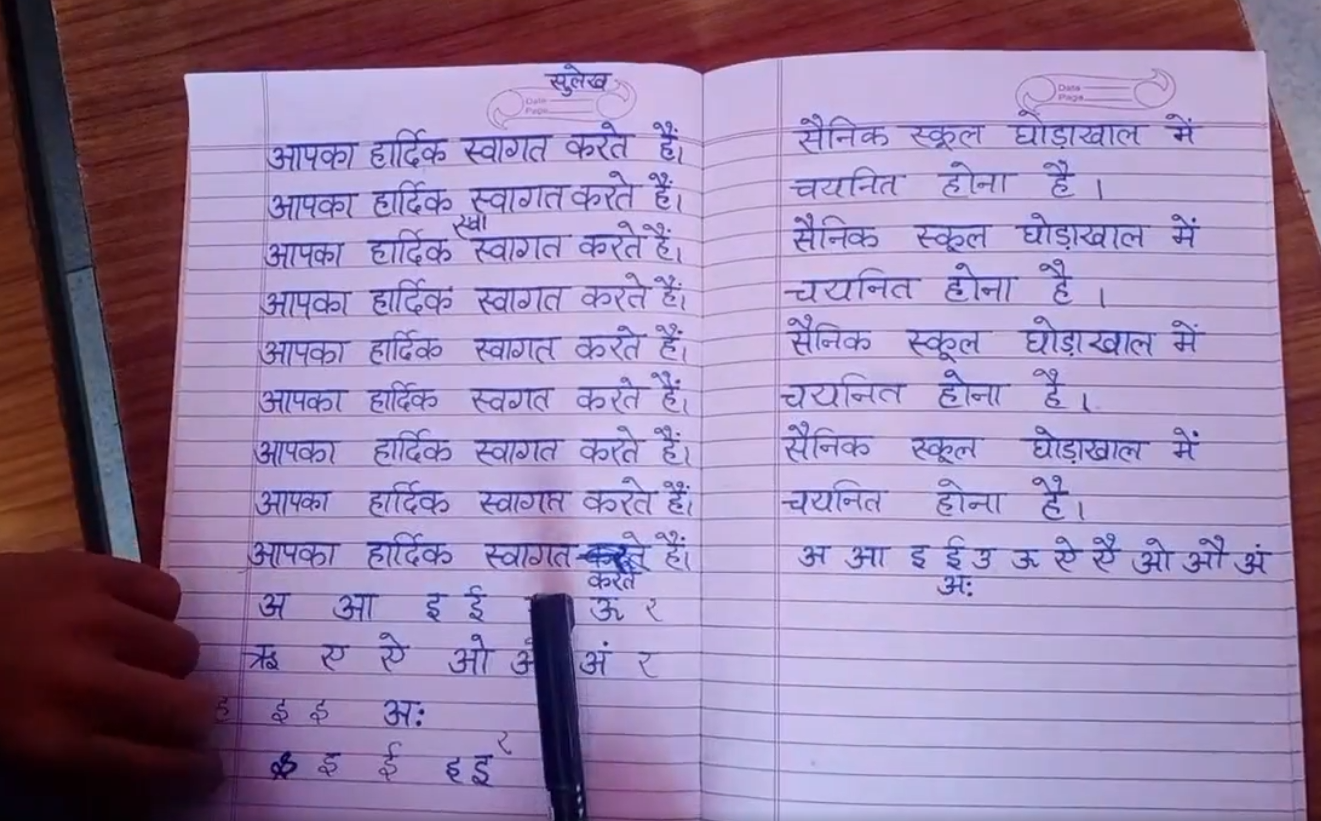 सुलेख
Date
Page
आपका हार्दिक स्वागत करते हैं।
आपका हार्दिक स्वागत करते हैं।
स्वा
आपका हार्दिक स्वागत करते हैं।
आपका हार्दिक स्वागत करते हैं।
आपका हार्दिक स्वागत करते हैं।
आपका हार्दिक स्वगत करते हैं।
आपका हार्दिक स्वागत करते हैं।
आपका हार्दिक स्वागत करते हैं।
आपका हार्दिक स्वागत हैं।
करते
अ आ इ ई ऊ र
ऋ ए ऐ ओ अं र
इ इ अः
इ ई इ इ र
Date
Page
सैनिक स्कूल घोड़ाखाल में
चयनित होना है ।
सैनिक स्कूल घोड़ाखाल में
चयनित होना है ।
सैनिक स्कूल घोड़ाखाल में
चयनित होना है ।
सैनिक स्कूल घोड़ाखाल में
चयनित होना है ।
अ आ इ ई उ ऊ ऐ ऐ ओ औ अं
अः